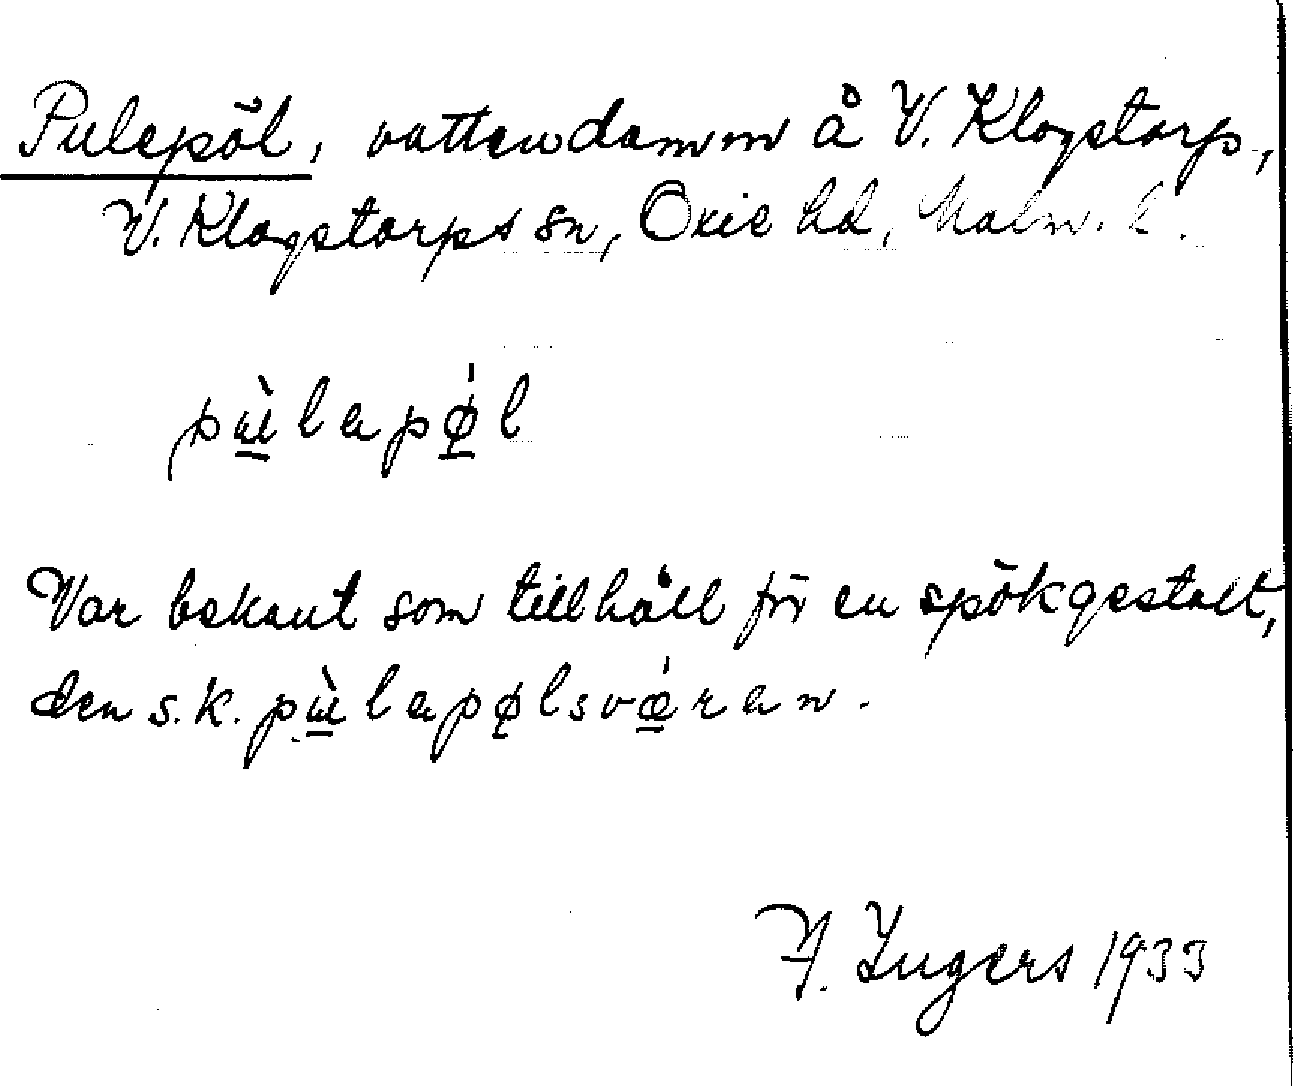 Pulepöl, vattendamm å V. Klagstorp,
V. Klagstorps sn, Oxie hd, Malm. l.
pùlapǿl
Var bekant som tillhåll för en spökgestalt,
den s.k. pùlapølsvǿran.
I. Ingers 1933